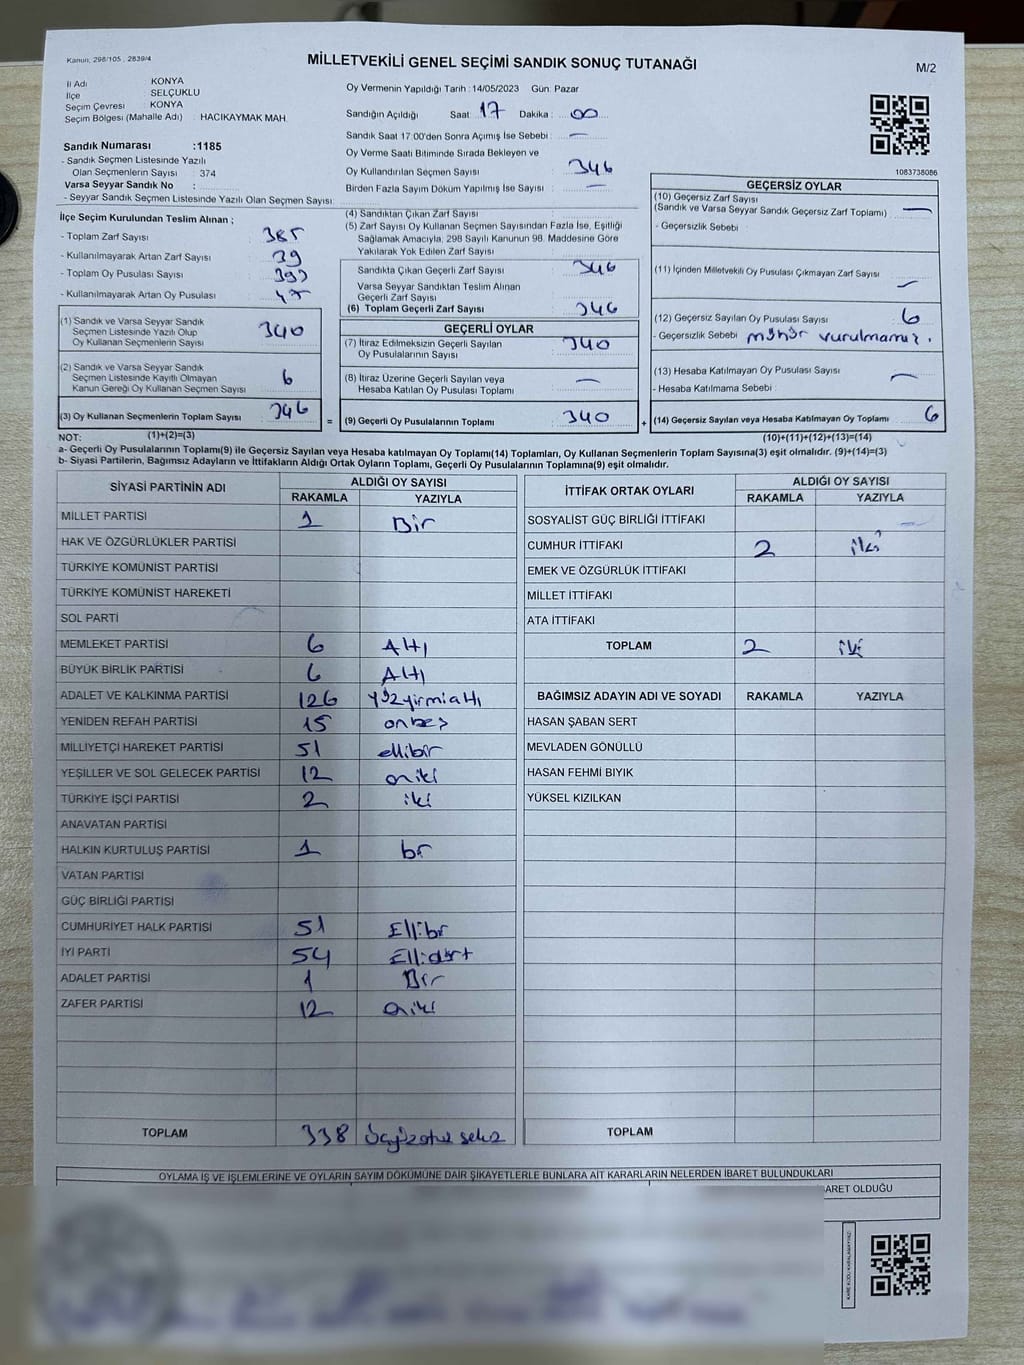 Kanun; 298/105 , 2839/4
MİLLETVEKİLİ GENEL SEÇİMİ SANDIK SONUÇ TUTANAĞI
M/2
İl Adı KONYA
İlçe SELÇUKLU
Seçim Çevresi KONYA
Seçim Bölgesi (Mahalle Adı) : HACIKAYMAK MAH.
Oy Vermenin Yapıldığı Tarih : 14/05/2023 Gün: Pazar
Sandığın Açıldığı Saat : 17 Dakika : 00
Sandık Saat 17:00'den Sonra Açımış İse Sebebi : —
Oy Verme Saati Bitiminde Sırada Bekleyen ve
Oy Kullandırılan Seçmen Sayısı 346
Birden Fazla Sayım Döküm Yapılmış İse Sayısı : —
Sandık Numarası :1185
- Sandık Seçmen Listesinde Yazılı
Olan Seçmenlerin Sayısı : 374
Varsa Seyyar Sandık No :
- Seyyar Sandık Seçmen Listesinde Yazılı Olan Seçmen Sayısı:
1083738086
İlçe Seçim Kurulundan Teslim Alınan ;
- Toplam Zarf Sayısı 385
- Kullanılmayarak Artan Zarf Sayısı 39
- Toplam Oy Pusulası Sayısı
- Kullanılmayarak Artan Oy Pusulası
(1) Sandık ve Varsa Seyyar Sandık
Seçmen Listesinde Yazılı Olup
Oy Kullanan Seçmenlerin Sayısı 340
(2) Sandık ve Varsa Seyyar Sandık
Seçmen Listesinde Kayıtlı Olmayan
Kanun Gereği Oy Kullanan Seçmen Sayısı 6
(3) Oy Kullanan Seçmenlerin Toplam Sayısı 346
(1)+(2)=(3)
(4) Sandıktan Çıkan Zarf Sayısı :
(5) Zarf Sayısı Oy Kullanan Seçmen Sayısından Fazla İse, Eşitliği
Sağlamak Amacıyla; 298 Sayılı Kanunun 98. Maddesine Göre
Yakılarak Yok Edilen Zarf Sayısı
Sandıkta Çıkan Geçerli Zarf Sayısı 346
Varsa Seyyar Sandıktan Teslim Alınan
Geçerli Zarf Sayısı
(6) Toplam Geçerli Zarf Sayısı 346
GEÇERLİ OYLAR
(7) İtiraz Edilmeksizin Geçerli Sayılan
Oy Pusulalarının Sayısı 340
(8) İtiraz Üzerine Geçerli Sayılan veya
Hesaba Katılan Oy Pusulası Toplamı —
= (9) Geçerli Oy Pusulalarının Toplamı 340
GEÇERSİZ OYLAR
(10) Geçersiz Zarf Sayısı
(Sandık ve Varsa Seyyar Sandık Geçersiz Zarf Toplamı) —
- Geçersizlik Sebebi
(11) İçinden Milletvekili Oy Pusulası Çıkmayan Zarf Sayısı —
(12) Geçersiz Sayılan Oy Pusulası Sayısı 6
- Geçersizlik Sebebi mühür vurulmamış.
(13) Hesaba Katılmayan Oy Pusulası Sayısı —
- Hesaba Katılmama Sebebi :
+ (14) Geçersiz Sayılan veya Hesaba Katılmayan Oy Toplamı 6
(10)+(11)+(12)+(13)=(14)
NOT:
a- Geçerli Oy Pusulalarının Toplamı(9) ile Geçersiz Sayılan veya Hesaba katılmayan Oy Toplamı(14) Toplamları, Oy Kullanan Seçmenlerin Toplam Sayısına(3) eşit olmalıdır. (9)+(14)=(3)
b- Siyasi Partilerin, Bağımsız Adayların ve İttifakların Aldığı Ortak Oyların Toplamı, Geçerli Oy Pusulalarının Toplamına(9) eşit olmalıdır.
SİYASİ PARTİNİN ADI ALDIĞI OY SAYISI
RAKAMLA YAZIYLA
MİLLET PARTİSİ 1 Bir
HAK VE ÖZGÜRLÜKLER PARTİSİ
TÜRKİYE KOMÜNİST PARTİSİ
TÜRKİYE KOMÜNİST HAREKETİ
SOL PARTİ
MEMLEKET PARTİSİ 6 Altı
BÜYÜK BİRLİK PARTİSİ 6 Altı
ADALET VE KALKINMA PARTİSİ 126 Yüzyirmialtı
YENİDEN REFAH PARTİSİ 15 onbeş
MİLLİYETÇİ HAREKET PARTİSİ 51 ellibir
YEŞİLLER VE SOL GELECEK PARTİSİ 12 oniki
TÜRKİYE İŞÇİ PARTİSİ 2 iki
ANAVATAN PARTİSİ
HALKIN KURTULUŞ PARTİSİ 1 bir
VATAN PARTİSİ
GÜÇ BİRLİĞİ PARTİSİ
CUMHURİYET HALK PARTİSİ 51 Ellibir
İYİ PARTİ 54 Ellidört
ADALET PARTİSİ 1 Bir
ZAFER PARTİSİ 12 oniki
TOPLAM 338 üçyüzotuz sekiz
İTTİFAK ORTAK OYLARI ALDIĞI OY SAYISI
RAKAMLA YAZIYLA
SOSYALİST GÜÇ BİRLİĞİ İTTİFAKI —
CUMHUR İTTİFAKI 2 iki
EMEK VE ÖZGÜRLÜK İTTİFAKI
MİLLET İTTİFAKI
ATA İTTİFAKI
TOPLAM 2 iki
BAĞIMSIZ ADAYIN ADI VE SOYADI RAKAMLA YAZIYLA
HASAN ŞABAN SERT
MEVLADEN GÖNÜLLÜ
HASAN FEHMİ BIYIK
YÜKSEL KIZILKAN
TOPLAM
OYLAMA İŞ VE İŞLEMLERİNE VE OYLARIN SAYIM DÖKÜMÜNE DAİR ŞİKAYETLERLE BUNLARA AİT KARARLARIN NELERDEN İBARET BULUNDUKLARI
BARET OLDUĞU
KARE KODU KARALAMAYINIZ!